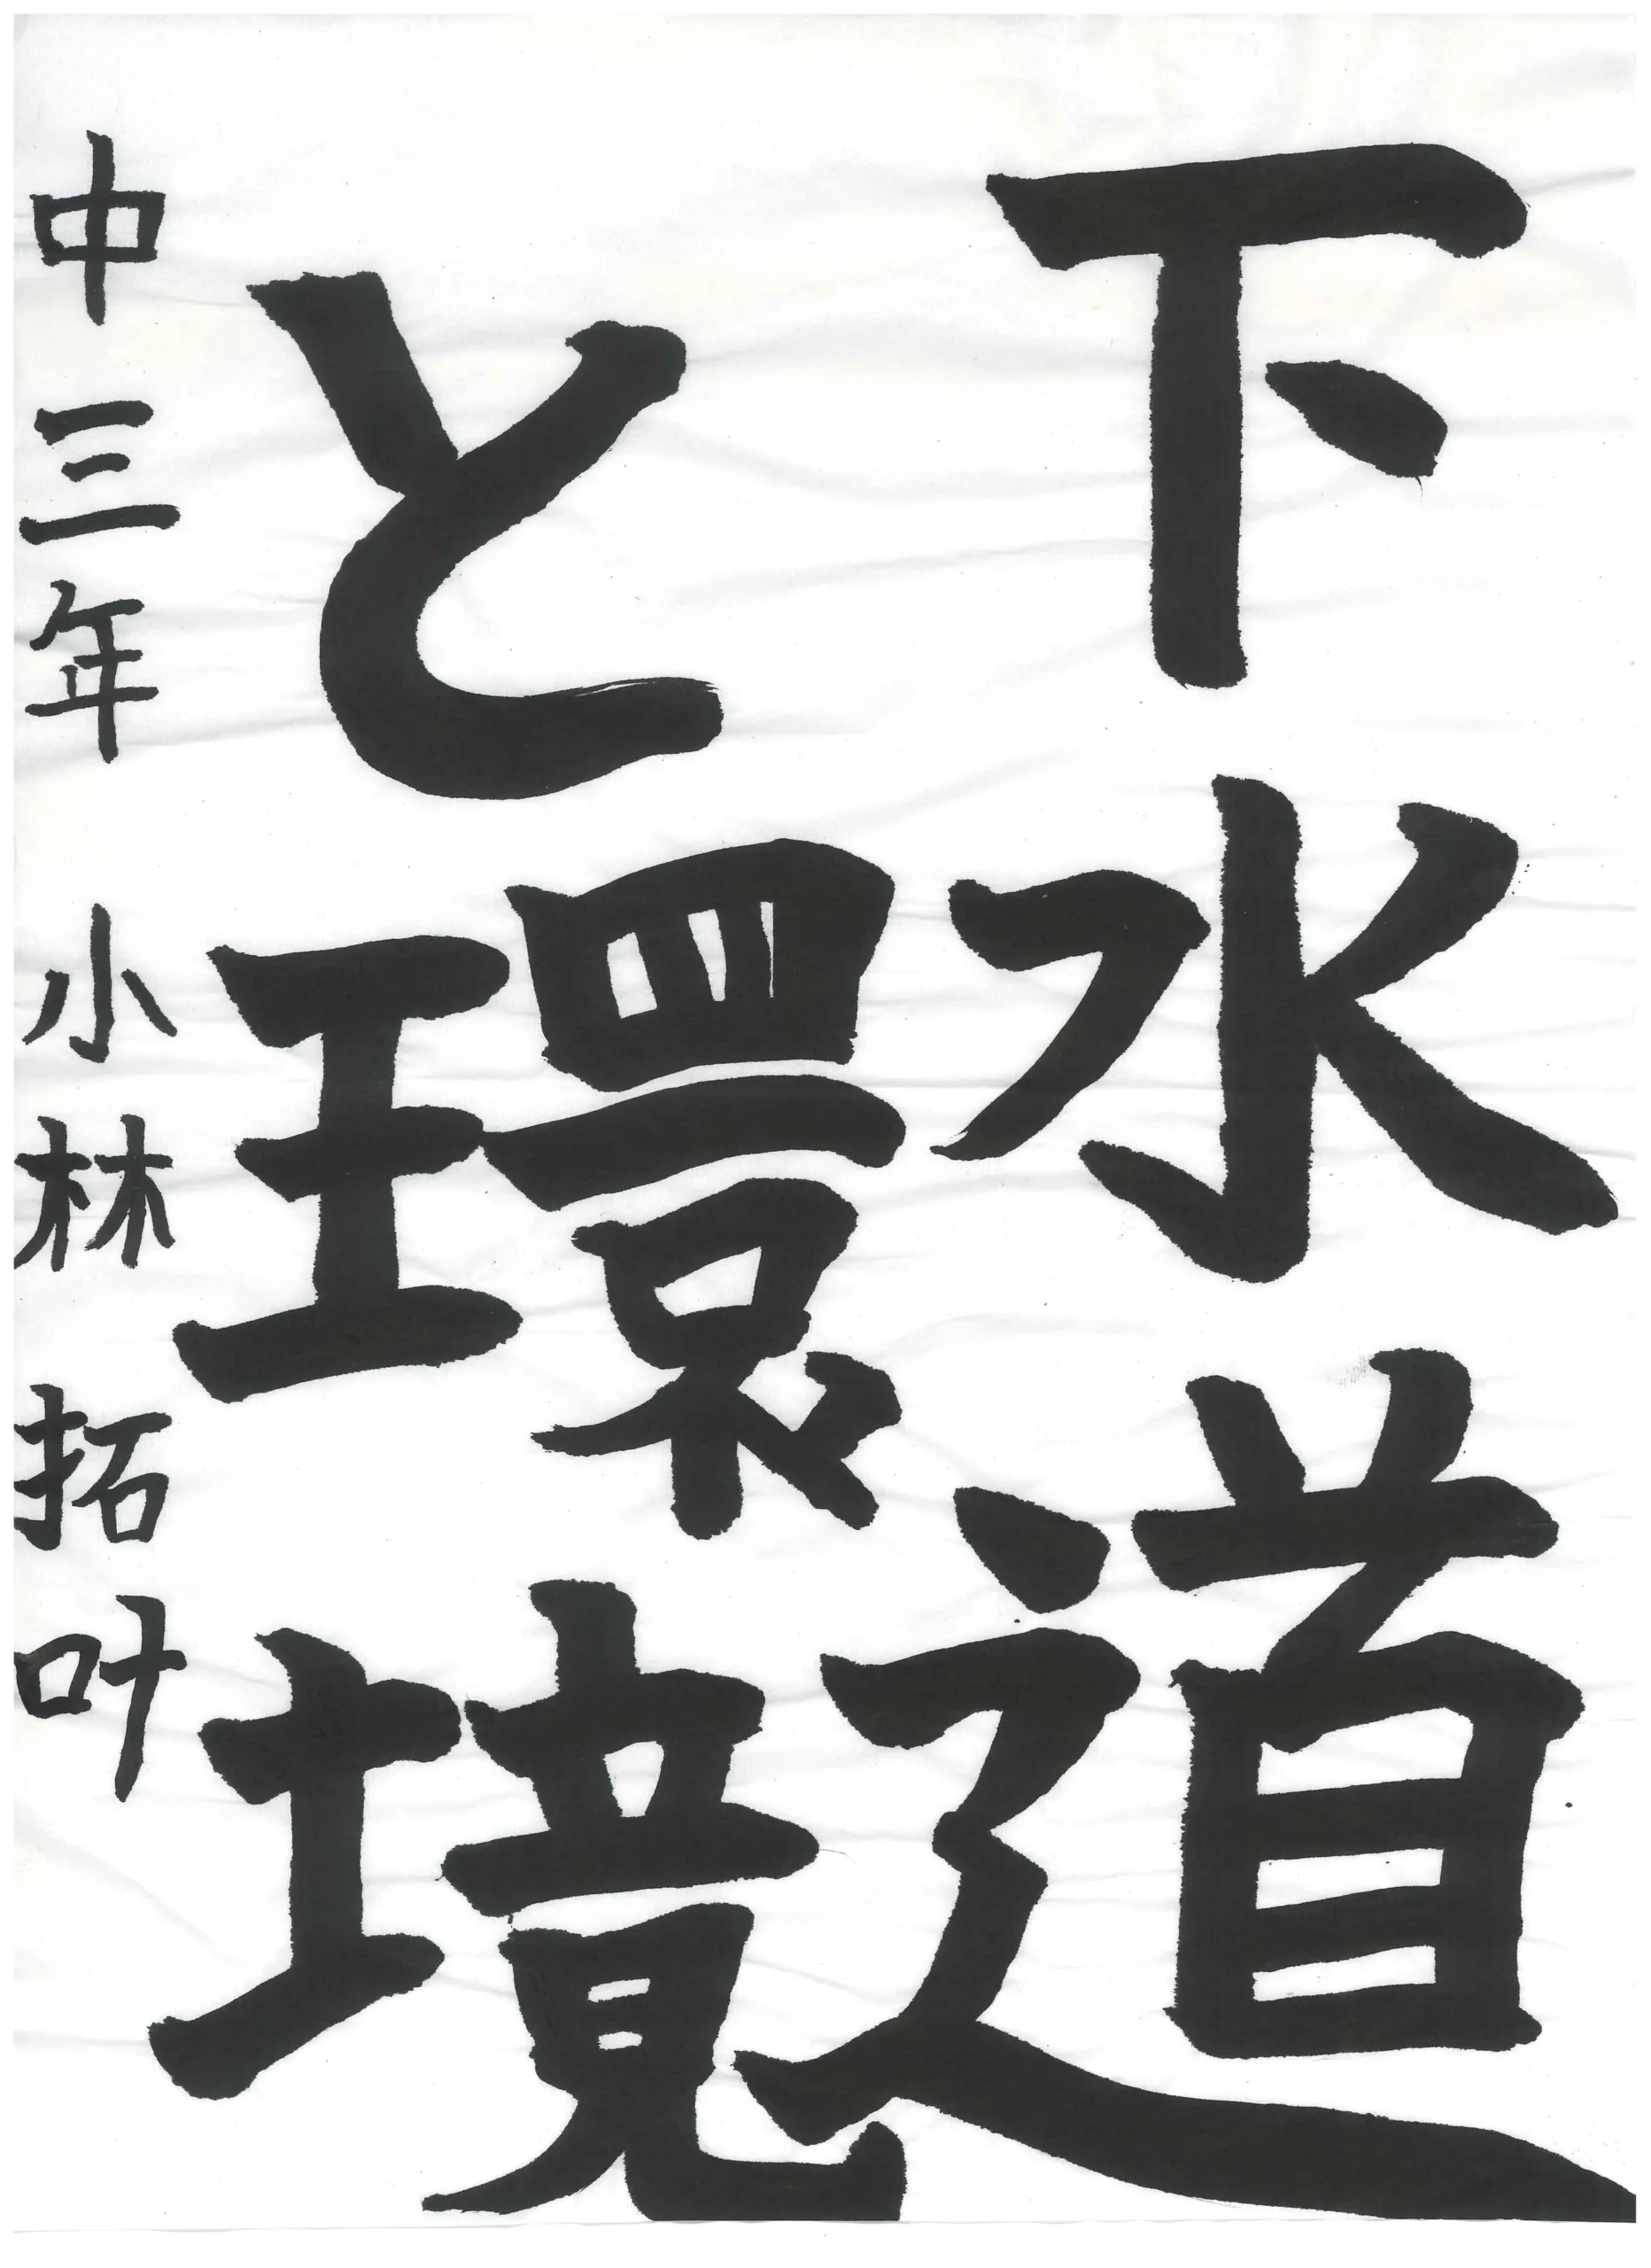 下水道
と環境
中三年 小林 拓叶